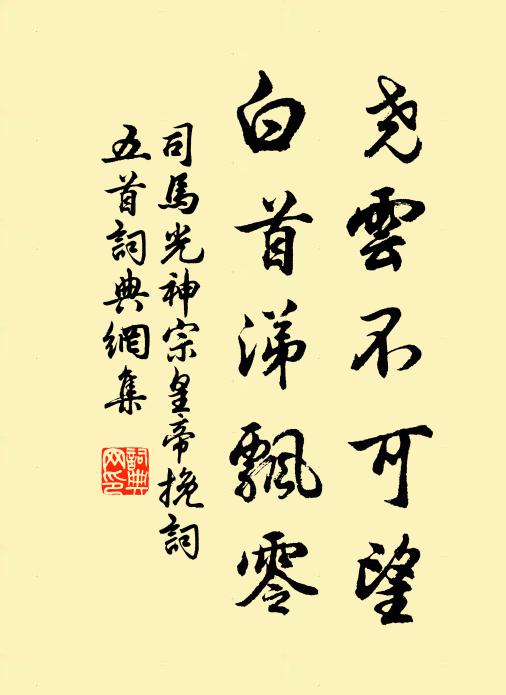 尧雲不可望
白首涕飄零
司馬光神宗皇帝挽詞
五首詞典網集
詞典
网印